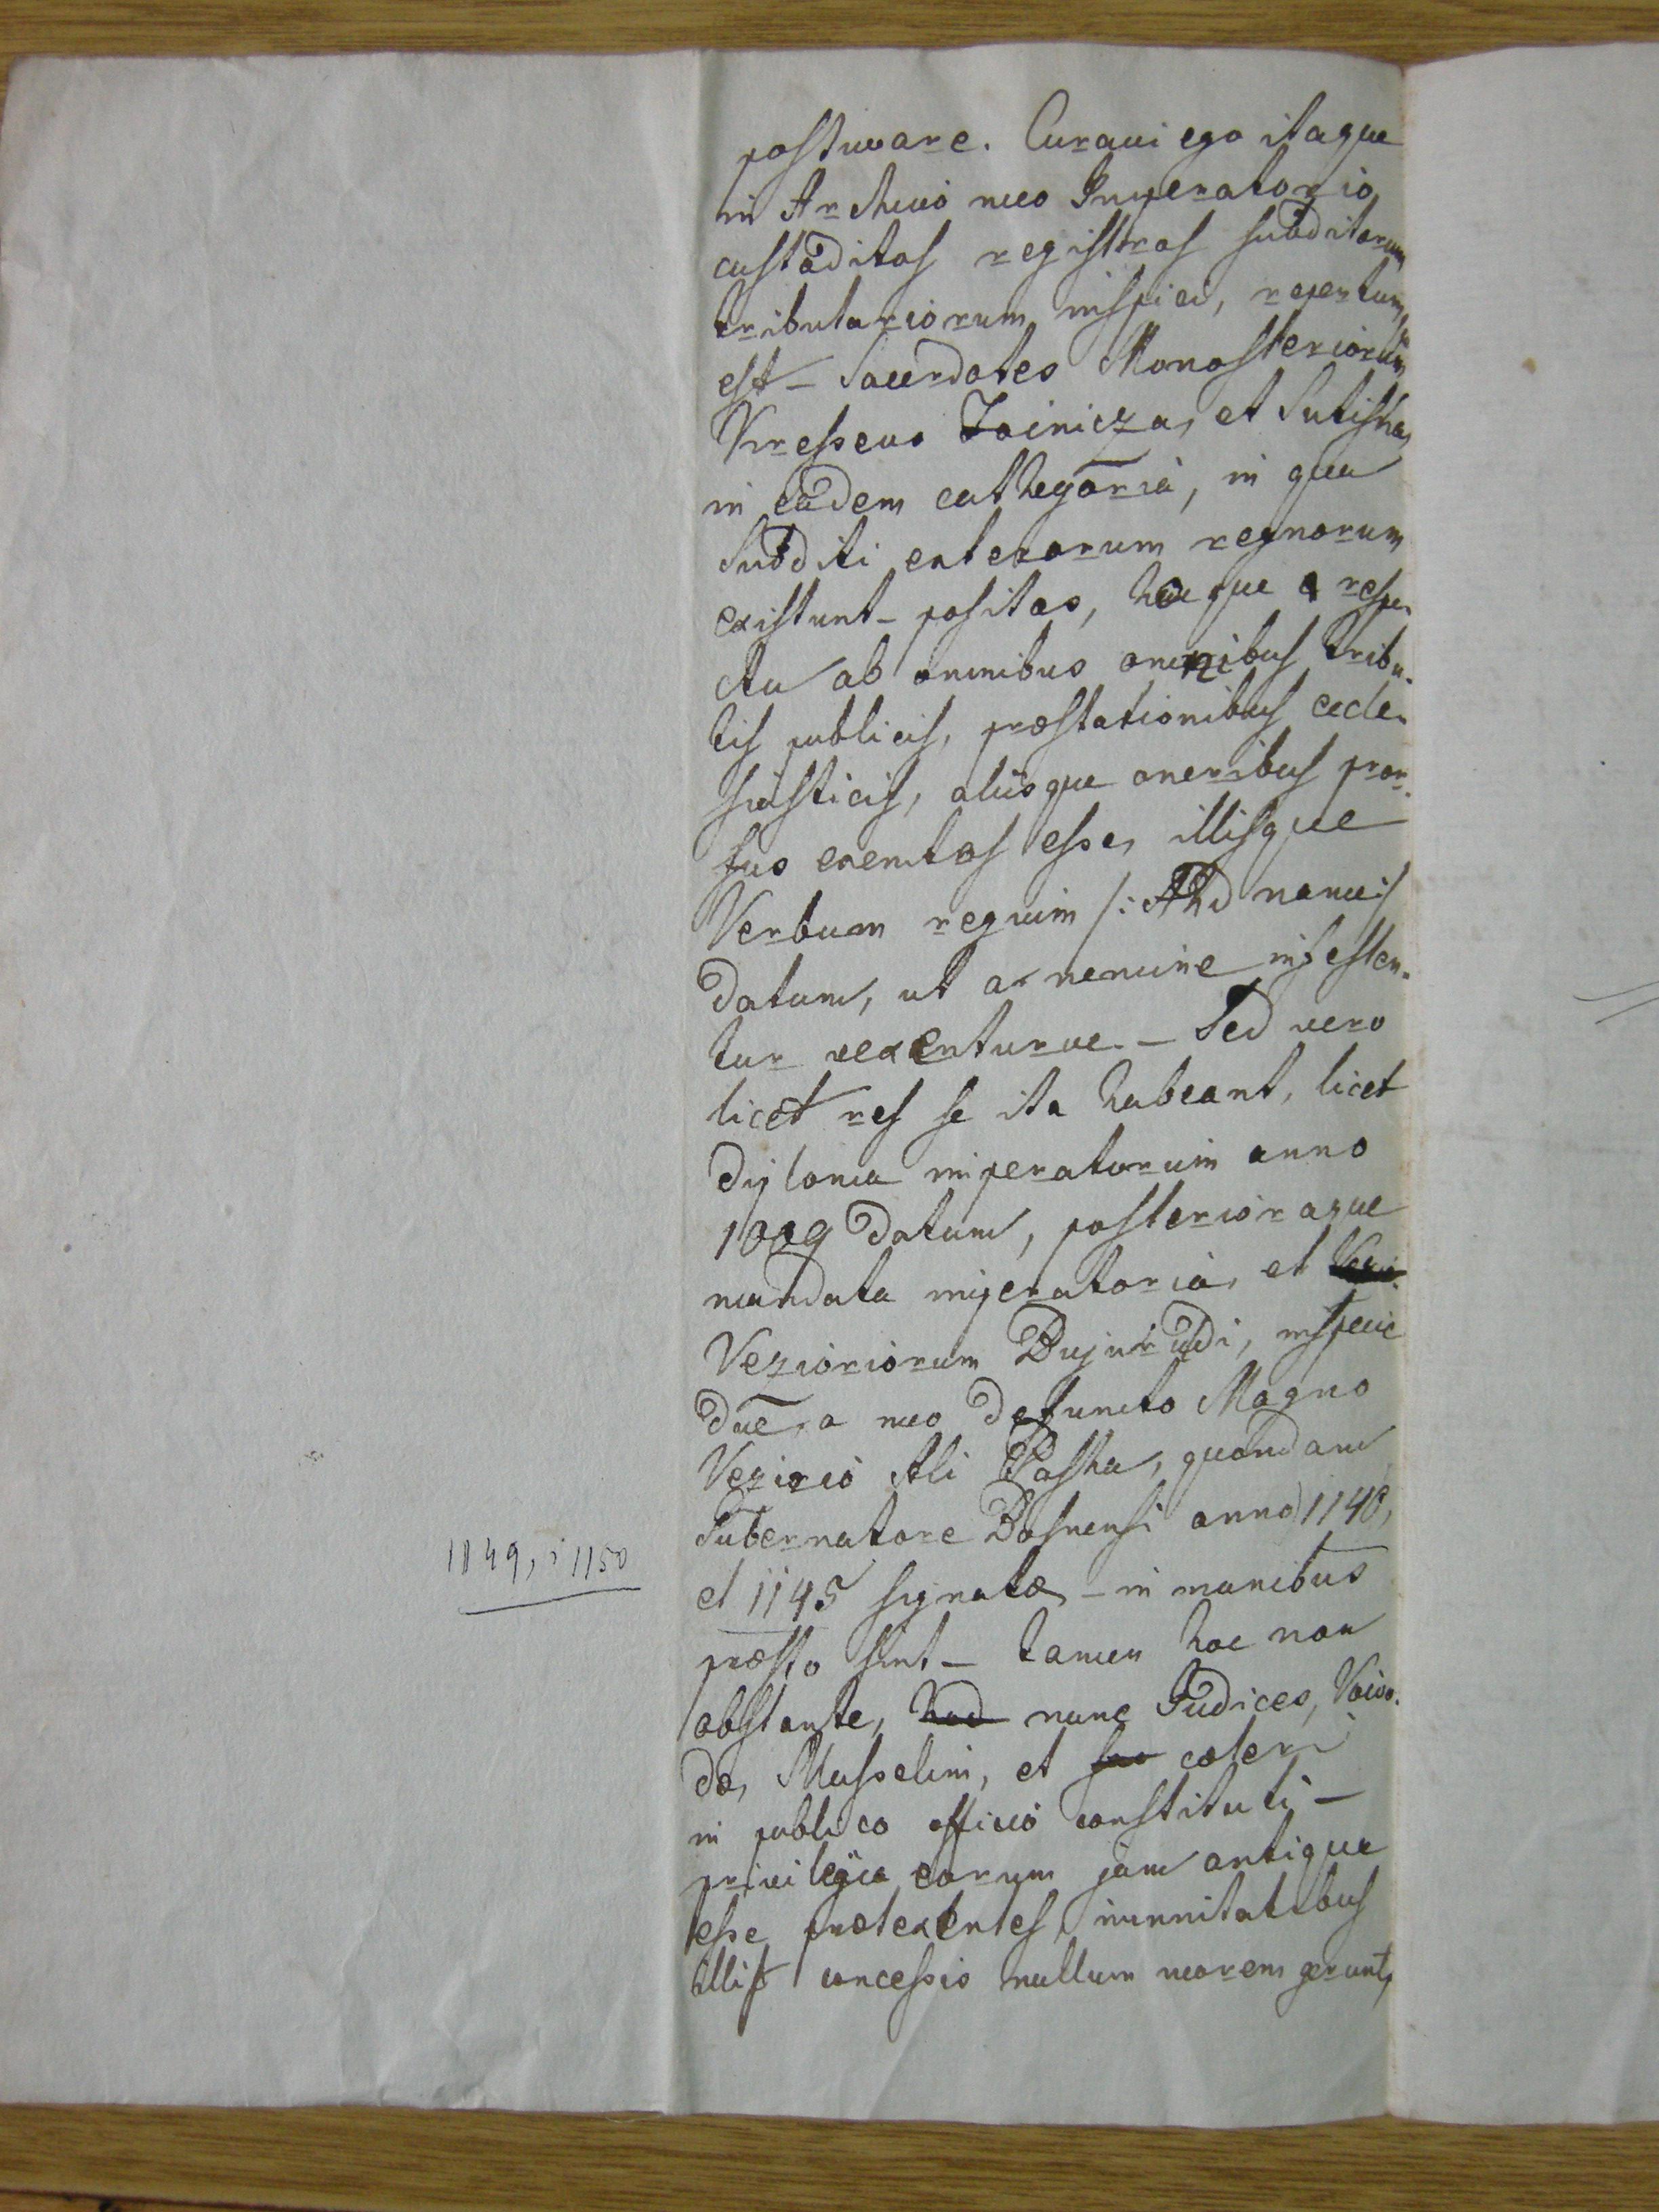 postuare. Curavi ego itaque
in Archivio meo Imperatorio
custoditos registros subditorum
tributariorum inspici, repertum
est – Sacerdotes Monasteriorum
Kressevo Foinicza, et Sutiska,
in eadem cathegoria, in qua
Subditi exterorum regnorum
existunt – positos, hocque respe-
ctu ab omnibus omnibus tribu-
tis publicis, præstationibus eccle-
siasticis, aliisque oneribus pror-
sus exemtos esse, illisque
Verbum regium /: Ahd nameis
datum, ut a nemine infesten-
tur vexenturve. – Sed vero
licet res se ita habeant, licet
dyploma imperatorium anno
1009 datum, posterioraque
mandata imperatoria, et
Vezioriorum Bujurudi, inspecie
duæ, a meo defuncto Magno
Vezirio Ali Pasha, quondam
Gubernatore Bosnensi anno 1148,
et 1145 signatæ, – in manibus
præsto sint – tamen hoc non
obstante, nunc Judices, Voivo-
dæ, Musselini, et cæteri
in publico officio constituti –
privilegia eorum jam antiqua
esse prætexentes, immnitatibus
illis concessis nullum morem gerunt,
1849, i 1150